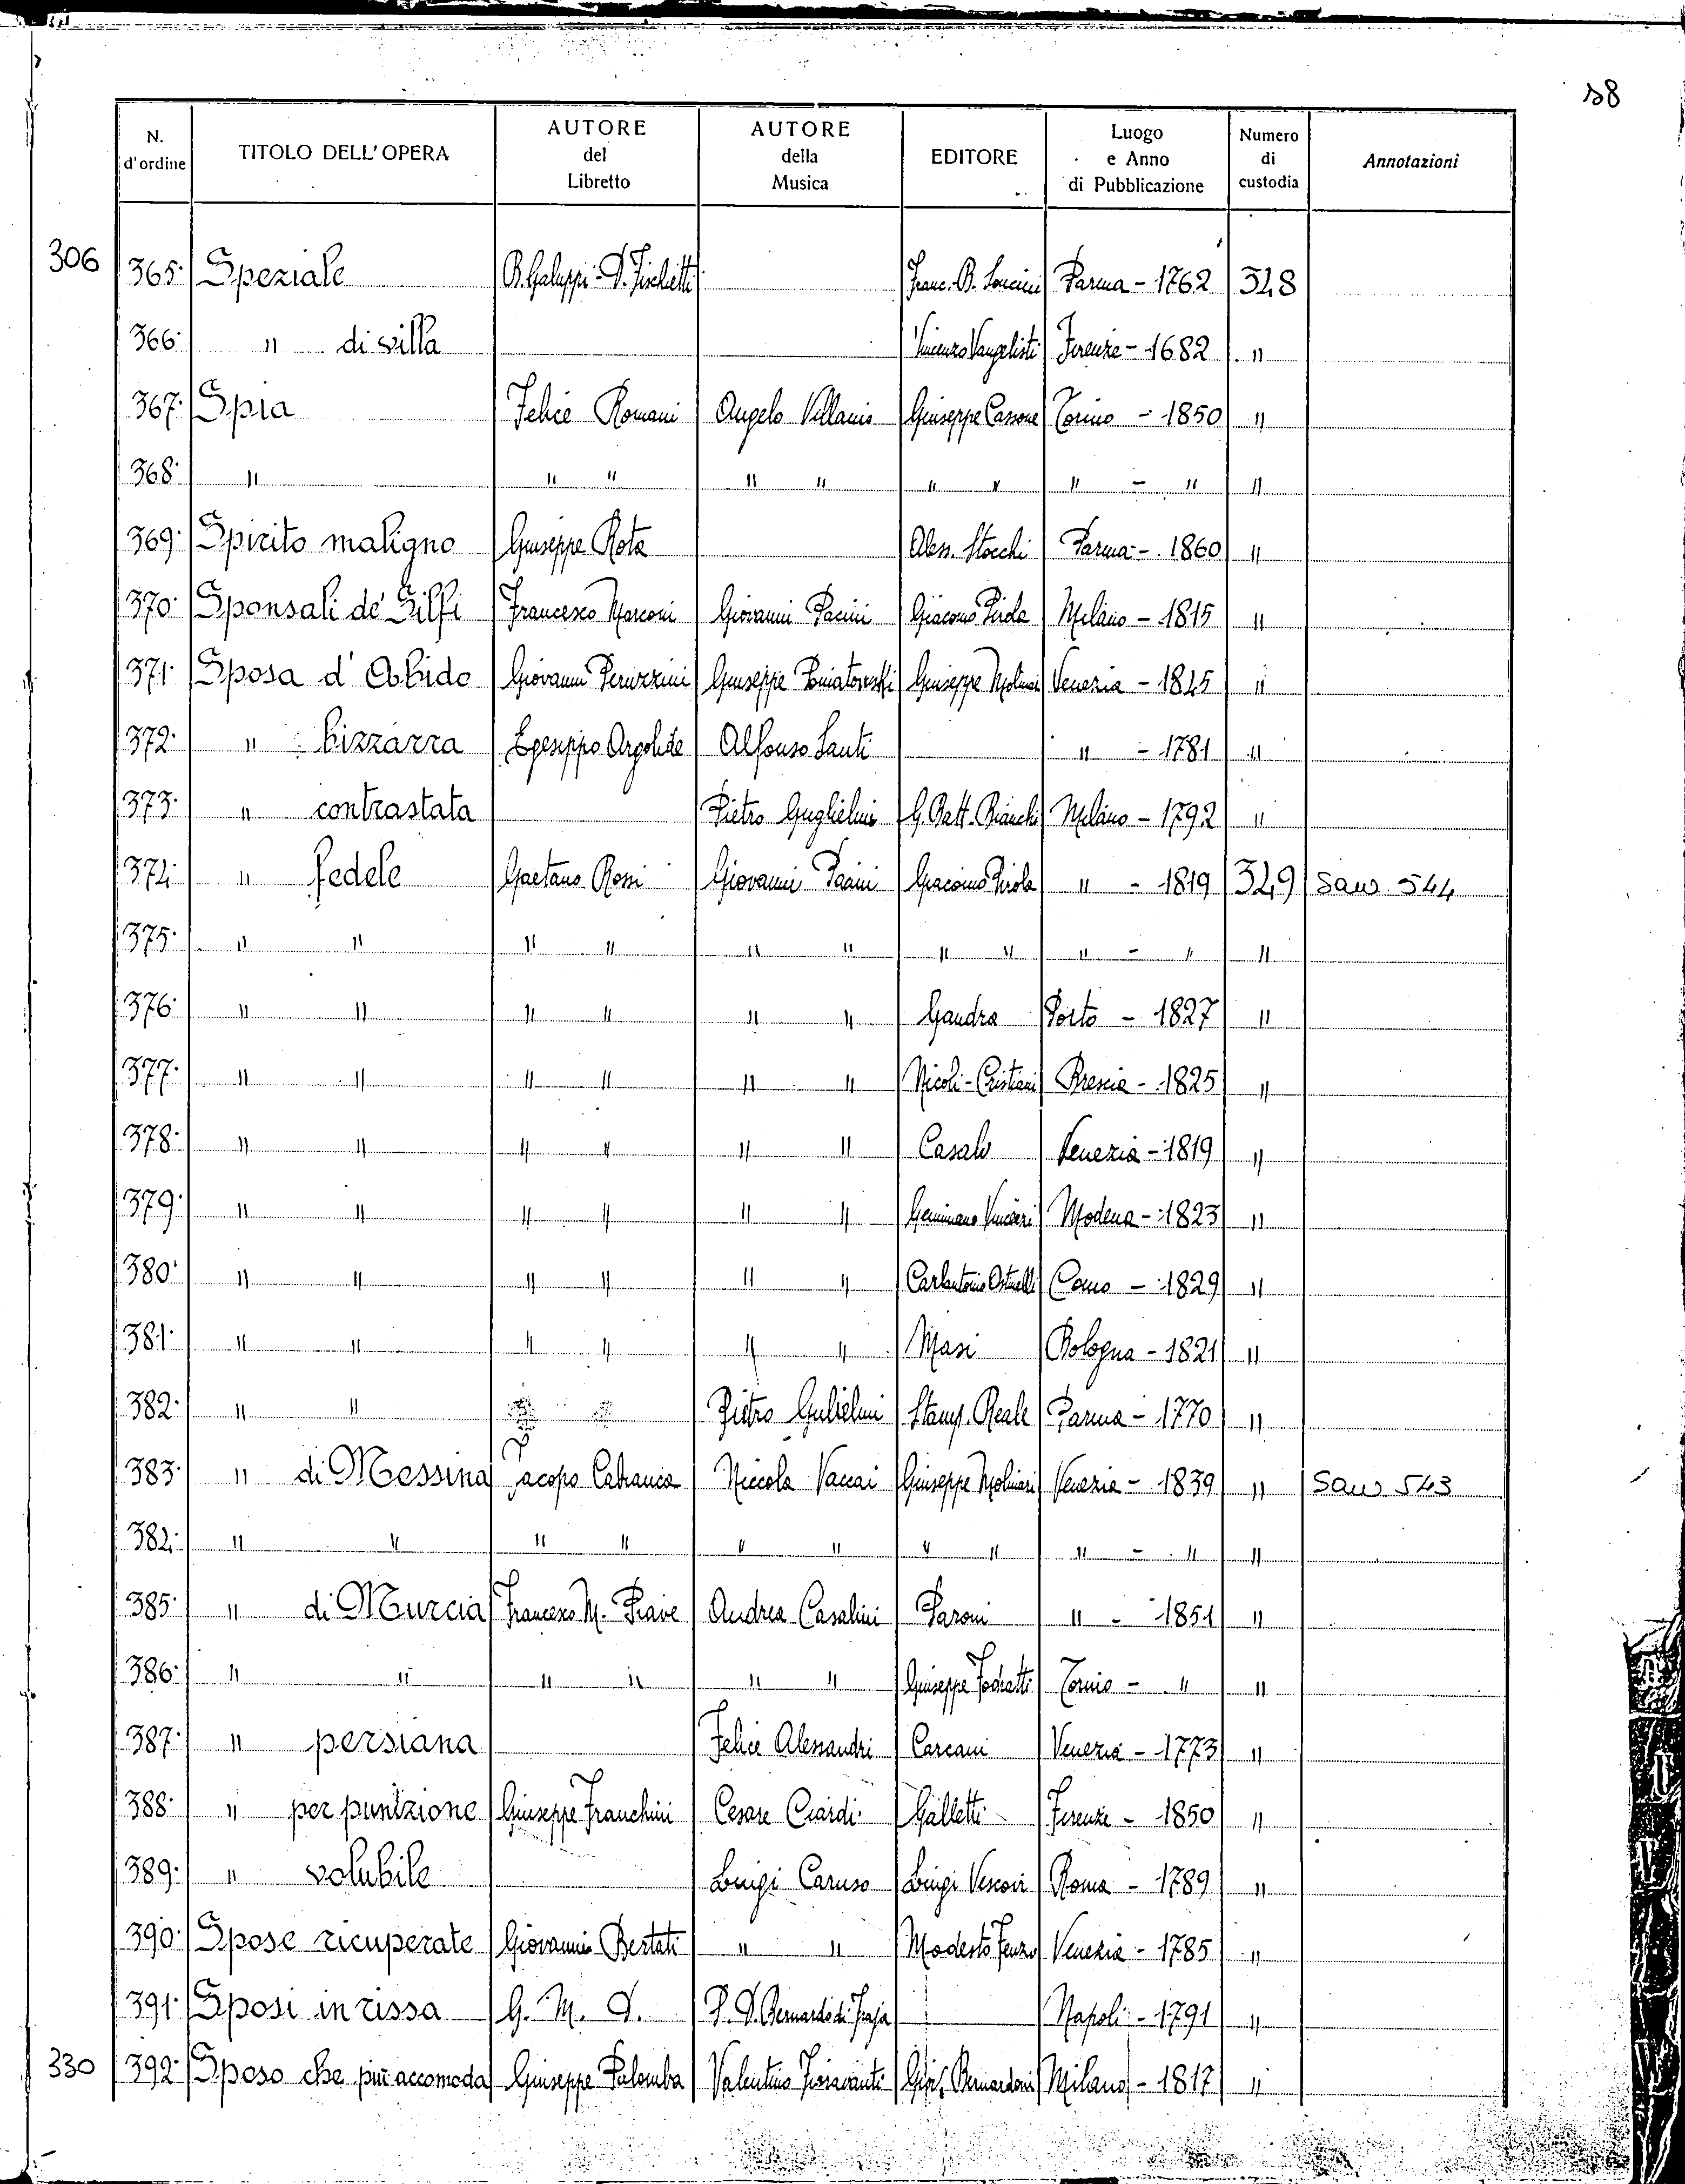 58
N. d'ordine TITOLO DELL'OPERA AUTORE del Libretto AUTORE della Musica EDITORE Luogo e Anno di Pubblicazione Numero di custodia Annotazioni
306 365. Speziale B. Galuppi - D. Fischietti Franc. B. Parma - 1762 348
366. " di villa Vincenzo Vangelisti Firenze - 1682 "
367. Spia Felice Romani Angelo Villanis Giuseppe Cassone Torino - 1850 "
368. " " " " " " " " - " "
369. Spirito maligno Giuseppe Rota Aless. Stocchi Parma - 1860 "
370. Sponsali de' Silfi Francesco Marconi Giovanni Pacini Giacomo Pirola Milano - 1815 "
371. Sposa d'Abido Giovanni Peruzzini Giuseppe Poniatowski Giuseppe Molinari Venezia - 1845 "
372. " bizzarra Egesippo Argolide Alfonso Santi " - 1781 "
373. " contrastata Pietro Guglielmi G. Batt. Bianchi Milano - 1792 "
374. " fedele Gaetano Rossi Giovanni Pacini Giacomo Pirola " - 1819 349 Sans 544
375. " " " " " " " " " - " "
376. " " " " " " Gandra Porto - 1827 "
377. " " " " " " Nicoli-Cristiani Brescia - 1825 "
378. " " " " " " Casali Venezia - 1819 "
379. " " " " " " Geminiano Vincenzi Modena - 1823 "
380. " " " " " " Carlantonio Ostinelli Como - 1829 "
381. " " " " " " Masi Bologna - 1821 "
382. " " Pietro Gulielmi Stamp. Reale Parma - 1770 "
383. " di Messina Jacopo Cabianca Niccola Vaccai Giuseppe Molinari Venezia - 1839 " Sans 543
384. " " " " " " " " " - " "
385. " di Murcia Francesco M. Piave Andrea Casalini Paroni " - 1851 "
386. " " " " " " Giuseppe Fodratti Torino - " "
387. " persiana Felice Alessandri Carcani Venezia - 1773 "
388. " per punizione Giuseppe Franchini Cesare Ciardi Galletti Firenze - 1850 "
389. " volubile Luigi Caruso Luigi Vescovi Roma - 1789 "
390. Spose ricuperate Giovanni Bertati " " Modesto Fenzo Venezia - 1785 "
391. Sposi in rissa G. M. D. P. D. Bernardo di Napoli - 1791 "
330 392. Sposo che più accomoda Giuseppe Palomba Valentino Fioravanti Bernardoni Milano - 1817 "